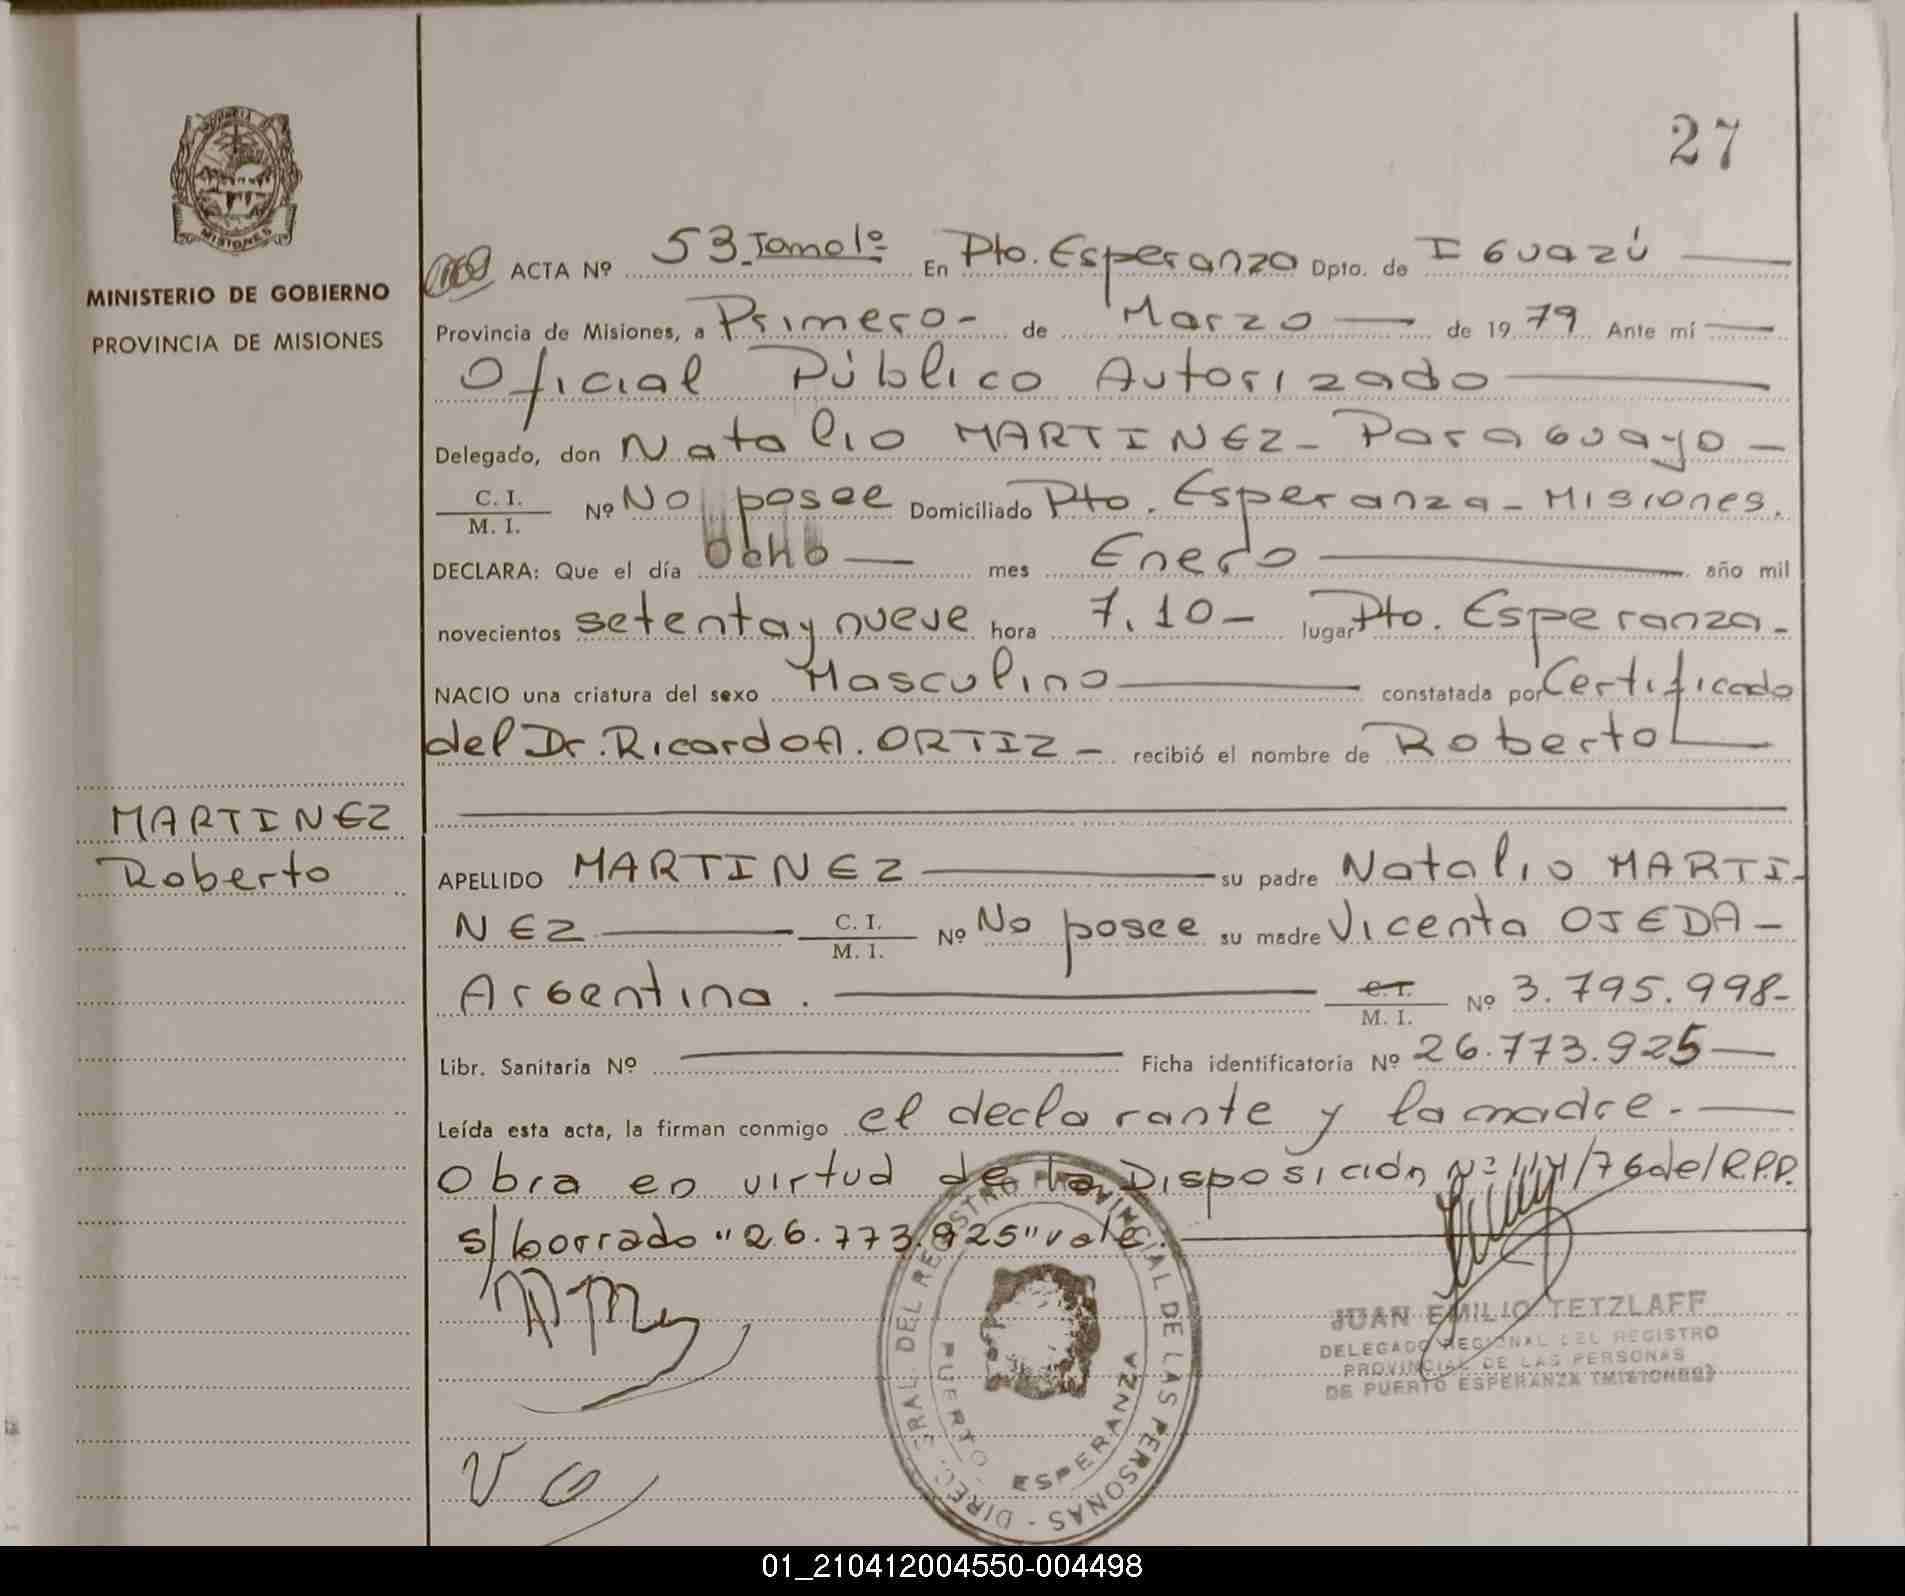 27
MISIONES
MINISTERIO DE GOBIERNO
PROVINCIA DE MISIONES
ACTA Nº 53 Tomo 1º En Pto. Esperanza Dpto. de Iguazú
Provincia de Misiones, a Primero- de Marzo de 1979 Ante mí
Oficial Público Autorizado
Delegado, don Natalio MARTINEZ - Paraguayo -
C. I. / M. I. Nº No posee Domiciliado Pto. Esperanza - Misiones.
DECLARA: Que el día ocho mes Enero año mil
novecientos setenta y nueve hora 7.10 - lugar Pto. Esperanza.-
NACIO una criatura del sexo Masculino constatada por Certificado
del Dr. Ricardo A. ORTIZ - recibió el nombre de Roberto
MARTINEZ
Roberto
APELLIDO MARTINEZ su padre Natalio MARTI-
NEZ C. I. / M. I. Nº No posee su madre Vicenta OJEDA -
Argentina. C. I. / M. I. Nº 3.795.998-
Libr. Sanitaria Nº Ficha identificatoria Nº 26.773.925
Leída esta acta, la firman conmigo el declarante y la madre.-
Obra en virtud de la Disposición Nº /76 del R.P.P.
s/borrado "26.773.925" vale.
DIREC. GRAL. DEL REGISTRO PROVINCIAL DE LAS PERSONAS -
PUERTO ESPERANZA
JUAN EMILIO TETZLAFF
DELEGADO REGIONAL DEL REGISTRO
PROVINCIAL DE LAS PERSONAS
DE PUERTO ESPERANZA (MISIONES)
V O
01_210412004550-004498